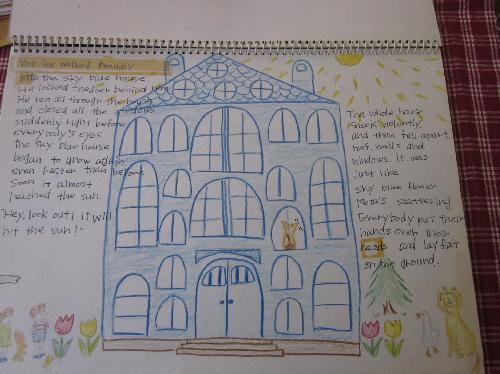 The fox walked proudly
into the sky blue house.
He locked the door behind him
He ran all through the house
and closed all the windows
suddenly right before
everybody's eyes
the sky blue house
began to grow again
even faster than before
Soon it almost
reached the sun.
"Hey, look out! it will
hit the sun!"
The whole house
shook violently
and than fell apart.
roof, walls and
windows. it was
just like
sky blue flower
Petals scattering
Everybody put their
hands over their
heads and lay flat
on the ground.